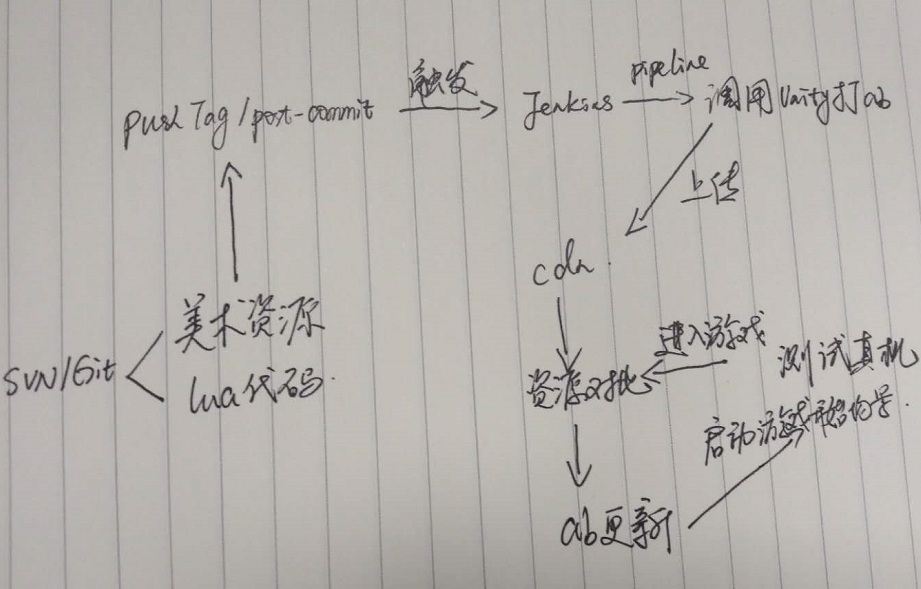 push Tag/post-commit
触发
Jenkins
pipeline
调用Unity打ab
上传
cdn
SVN/Git
美术资源
lua代码
资源对比
进入游戏
测试真机
启动游戏开始
ab更新